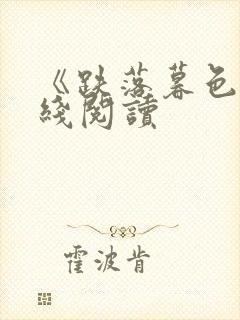 《跌落暮色
綫閱讀
霍波肯